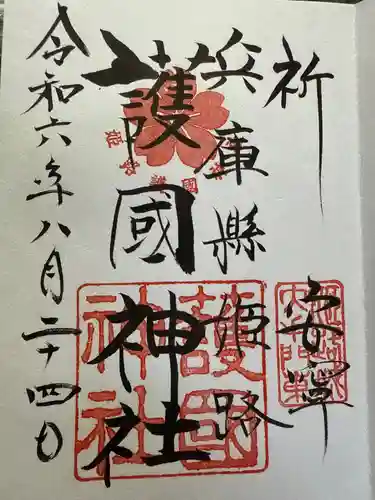 祈 安寧
兵庫縣姫路
護國神社
令和六年八月二十四日
護國
神社